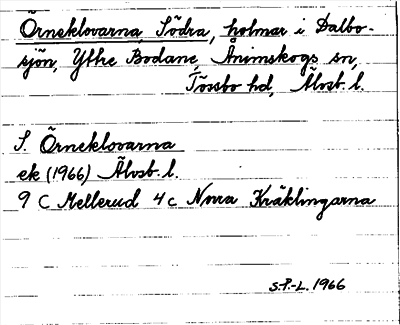 Örneklovarna, Södra, holmar i Dalbo-
sjön, Yttre Bodane, Ånimskogs sn,
Tössbo hd, Älvsb. l.
S. Örneklovarna
ek (1966) Älvsb. l.
9 C Mellerud 4c Norra Kräklingarna
S-P-L. 1966